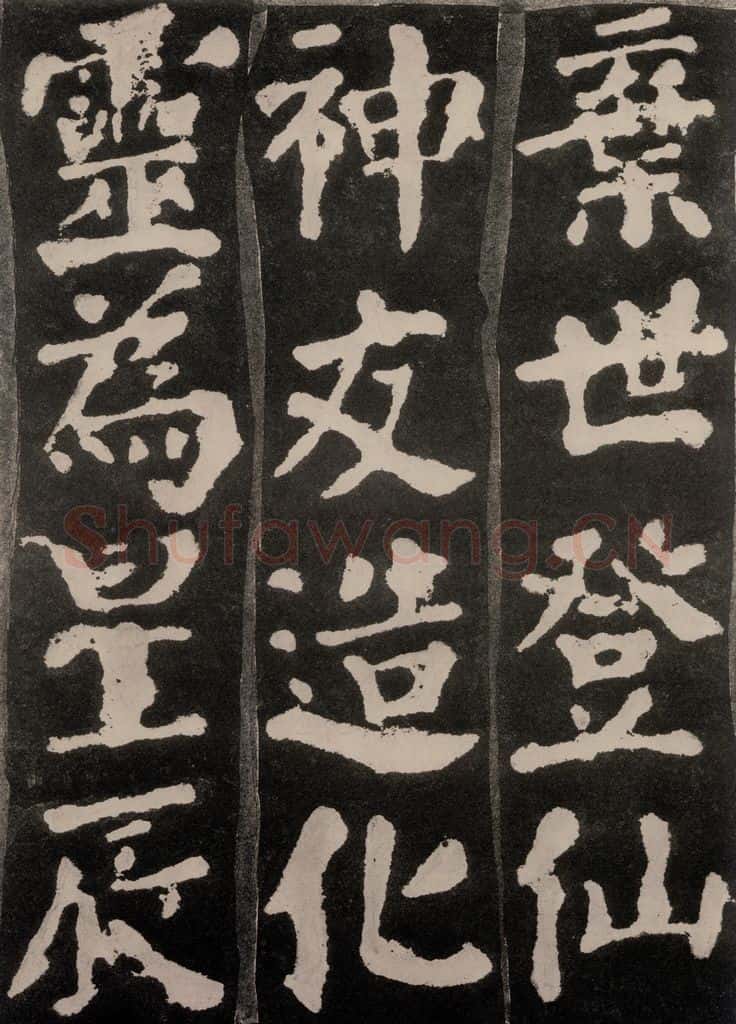 棄世登仙
神友造化
靈為星辰
Shufawang.CN